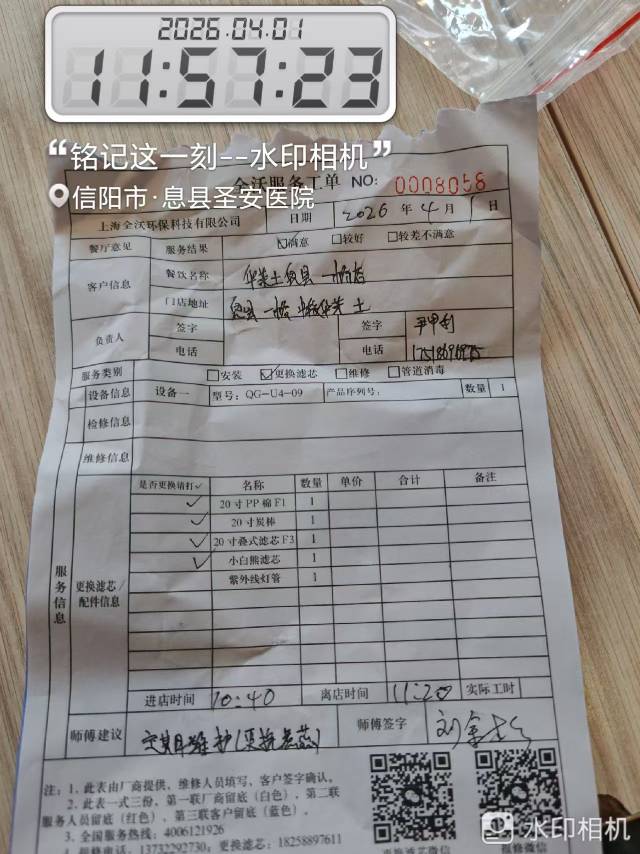 2026.04.01
11:57:23
“铭记这一刻--水印相机”
信阳市·息县圣安医院
全沃服务工单 NO: 0008058
上海全沃环保科技有限公司 日期 2026 年 4 月 1 日
餐厅意见 服务结果 满意 较好 较差不满意
客户信息 餐饮名称 华莱士息县一桥店
门店地址 息县一桥 华莱士
负责人 签字 签字
电话 电话
服务类别 安装 更换滤芯 维修 管道消毒
设备信息 设备一 型号: QG-U4-09 产品序列号: 数量 1
检修信息
维修信息
服务信息
更换滤芯/配件信息
是否更换请打✓ 名称 数量 单价 合计 备注
✓ 20寸PP棉F1 1
✓ 20寸炭棒 1
✓ 20寸叠式滤芯F3 1
✓ 小白熊滤芯 1
紫外线灯管 1
进店时间 10:40 离店时间 11:20 实际工时
师傅建议 定期维护(更换滤芯) 师傅签字
注: 1、此表由厂商提供、维修人员填写、客户签字确认。
2、此表一式三份、第一联厂商留底(白色)、第二联
服务人员留底(红色)、第三联客户留底(蓝色)。
3、全国服务热线: 4006121926
报修电话: 13732292730; 更换滤芯: 18258897611
更换滤芯微信 报修微信
水印相机